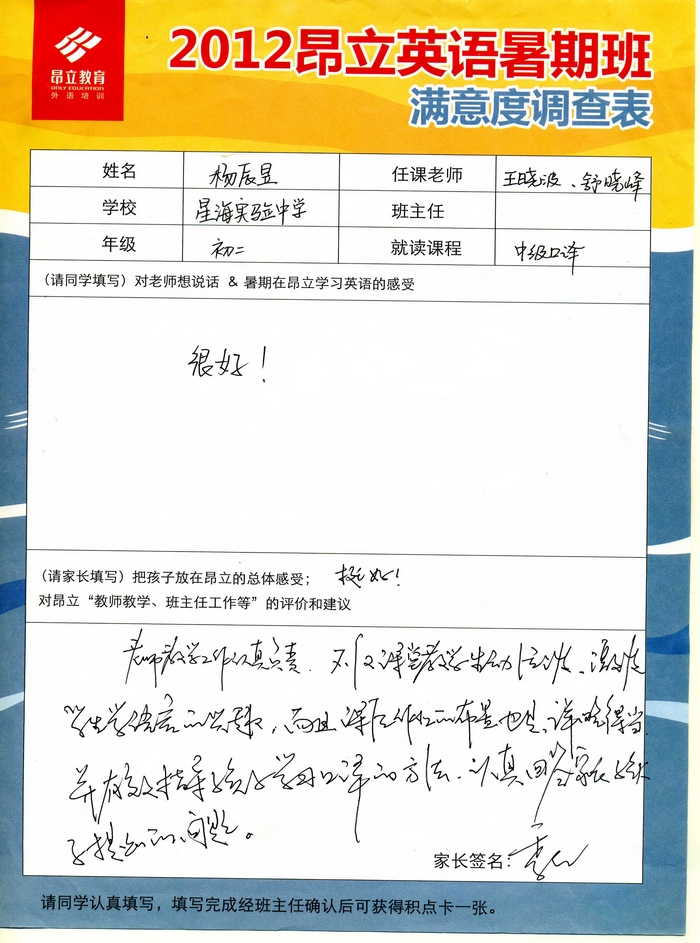 昂立教育
ONLY EDUCATION
外语培训
2012昂立英语暑期班
满意度调查表
姓名 杨辰昱 任课老师 王晓波、舒晓峰
学校 星海实验中学 班主任
年级 初二 就读课程 中级口译
(请同学填写)对老师想说话 & 暑期在昂立学习英语的感受
很好!
(请家长填写)把孩子放在昂立的总体感受; 挺好!
对昂立“教师教学、班主任工作等”的评价和建议
老师教学工作认真负责.不仅课堂教学生动活泼、激发
学生学语言的兴趣,而且课后作业的布置也是详略得当.
并有效指导孩子学习口译的方法.认真回答家长孩
子提出的问题。
家长签名:
请同学认真填写,填写完成经班主任确认后可获得积点卡一张。